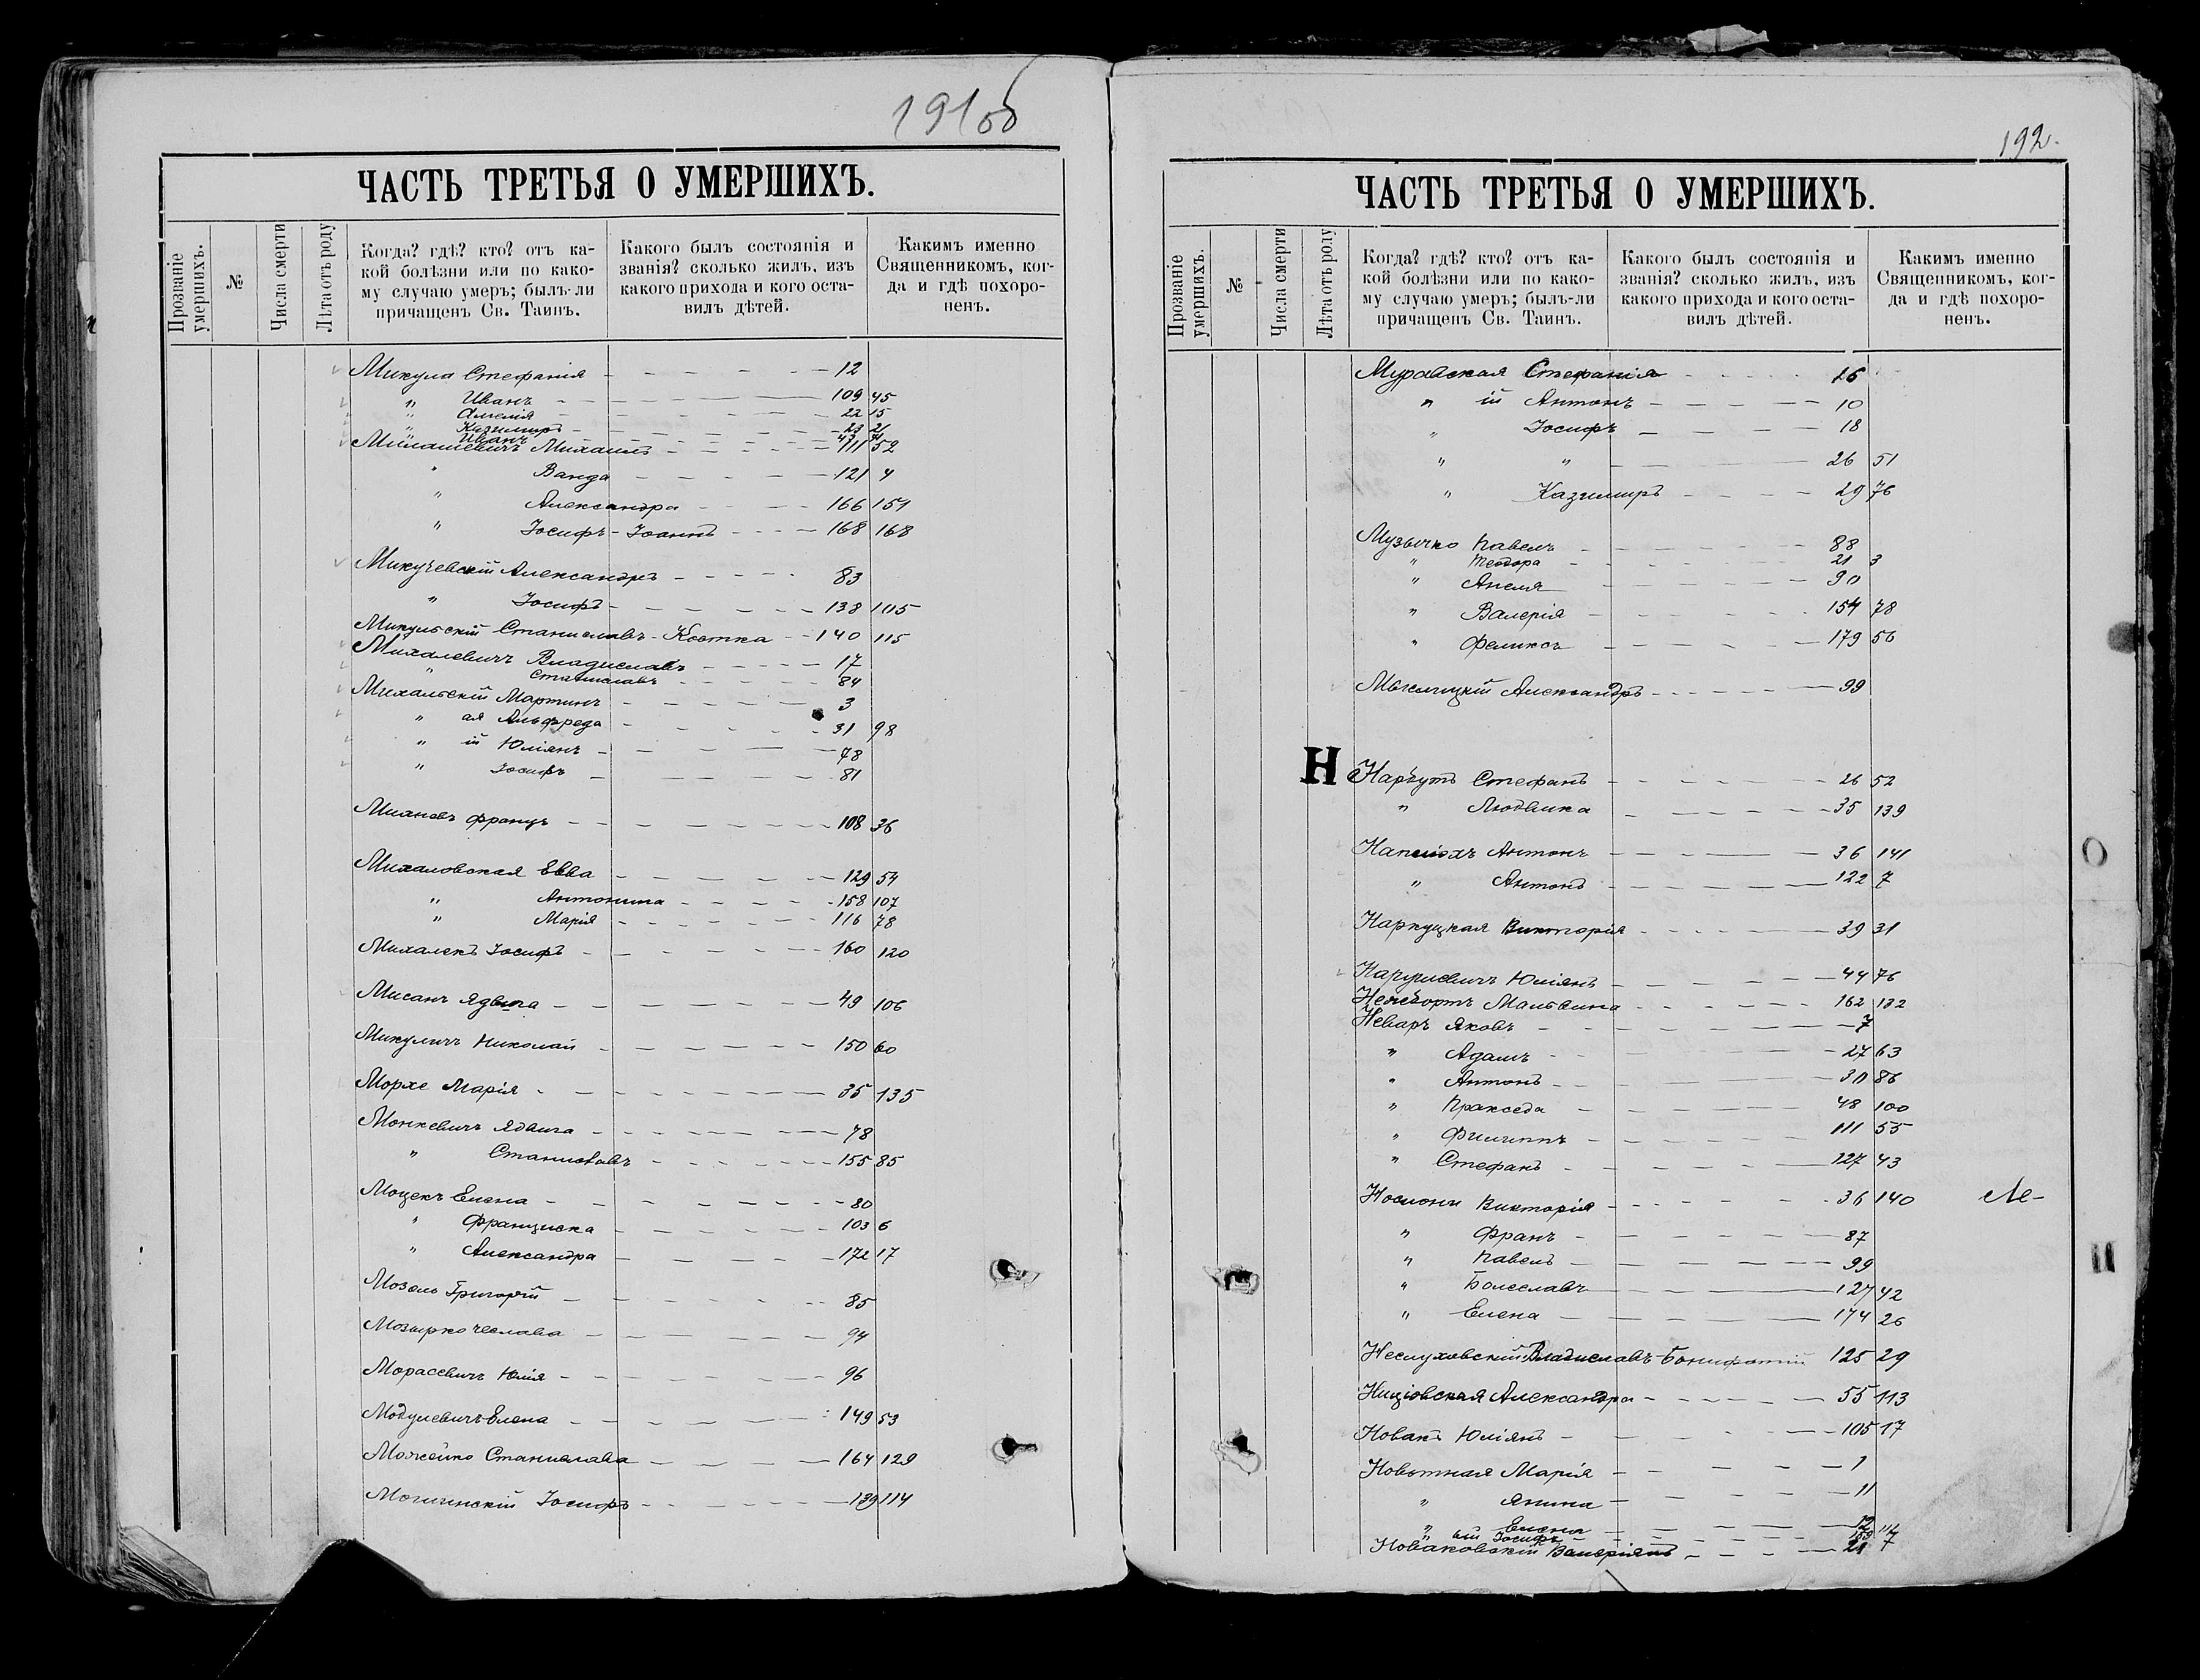 191об
ЧАСТЬ ТРЕТЬЯ О УМЕРШИХЪ.
Прозваніе умершихъ.
№
Числа смерти
Лѣта отъ роду
Когда? гдѣ? кто? отъ ка-
кой болѣзни или по како-
му случаю умеръ; былъ-ли
причащенъ Св. Таинъ.
Какого былъ состоянія и
званія? сколько жилъ, изъ
какого прихода и кого оста-
вилъ дѣтей.
Какимъ именно
Священникомъ, ког-
да и гдѣ похоро-
ненъ.
Микула Стефанія - - - - - 12
" Иванъ - - - 109 45
" Амелія - - - 22 15
" Казимиръ - - - 23 21
" Иванъ
Михаилъ - - - 111 52
" Ванда - - - 121 4
" Александра - - - 166 151
" Іосифъ-Іоаннъ - - - 168 168
Микучевскій Александръ - - - 83
" Іосифъ - - - 138 105
Микульскій Станиславъ-Костка - - 140 115
Михалевичъ Владиславъ - - - 17
" Станиславъ - - - 84
Михальскій Мартинъ - - - 3
" ая Альфреда - - - 31 98
" ій Юліянъ - - - 78
" Іосифъ - - - 81
Францъ - - - 108 36
Михаловская Евва - - - 129 54
" Антонина - - - 158 107
" Марія - - - 116 78
Михалекъ Іосифъ - - - 160 120
Мисанъ Ядвига - - - 49 106
Микуличъ Николай - - - 150 60
Морхе Марія - - - 35 135
Монкевичъ Ядвига - - - 78
" Станиславъ - - - 155 85
Моцекъ Елена - - - 80
" Франциска - - - 103 6
" Александра - - - 172 17
Мозоль Григорій - - - 85
Мозырко Чеслава - - - 94
Морасевичъ Юлія - - - 96
Модулевичъ Елена - - - 149 53
Можейко Станислава - - - 164 129
Іосифъ - - - 139 114
192.
ЧАСТЬ ТРЕТЬЯ О УМЕРШИХЪ.
Прозваніе умершихъ.
№
Числа смерти
Лѣта отъ роду
Когда? гдѣ? кто? отъ ка-
кой болѣзни или по како-
му случаю умеръ; былъ-ли
причащенъ Св. Таинъ.
Какого былъ состоянія и
званія? сколько жилъ, изъ
какого прихода и кого оста-
вилъ дѣтей.
Какимъ именно
Священникомъ, ког-
да и гдѣ похоро-
ненъ.
Муравская Стефанія - - - 16
" ій Антонъ - - - 10
" Іосифъ - - - 18
" " - - - 26 51
" Казимиръ - - - 29 76
Музычко Павелъ - - - 88
" Теодора - - - 21 3
" Анеля - - - 90
" Валерія - - - 154 78
" Феликсъ - - - 179 56
Александръ - - - 99
Н
Нарбутъ Стефанъ - - - 26 52
" Людвика - - - 35 139
Антонъ - - - 36 141
" Антонъ - - - 122 7
Наркуцкая Викторія - - - 39 31
Нарушевичъ Юліянъ - - - 44 76
Мальвина - - - 162 132
Неваръ Яковъ - - - 7
" Адамъ - - - 27 63
" Антонъ - - - 30 86
" Пракседа - - - 48 100
" Филиппъ - - - 111 55
" Стефанъ - - - 127 43
Викторія - - - 36 140
" Францъ - - - 87
" Павелъ - - - 99
" Болеславъ - - - 127 42
" Елена - - - 174 26
Неслуховскій Владиславъ-Бонифатій 125 29
Александра - - - 55 113
Новакъ Юліянъ - - - 105 17
Новотная Марія - - - 1
" Янина - - - 11
" Елена - - - 12
" ый Іосифъ
Новаковскій Валеріянъ - - - 21 7